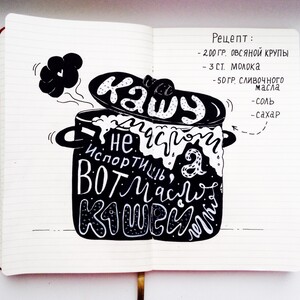 Рецепт:
-200 гр. овсяной крупы
-3 ст. молока
-50 гр. сливочного
масла
-соль
-сахар
Кашу
маслом
не
испортишь
а
вот масло
кашей
легко